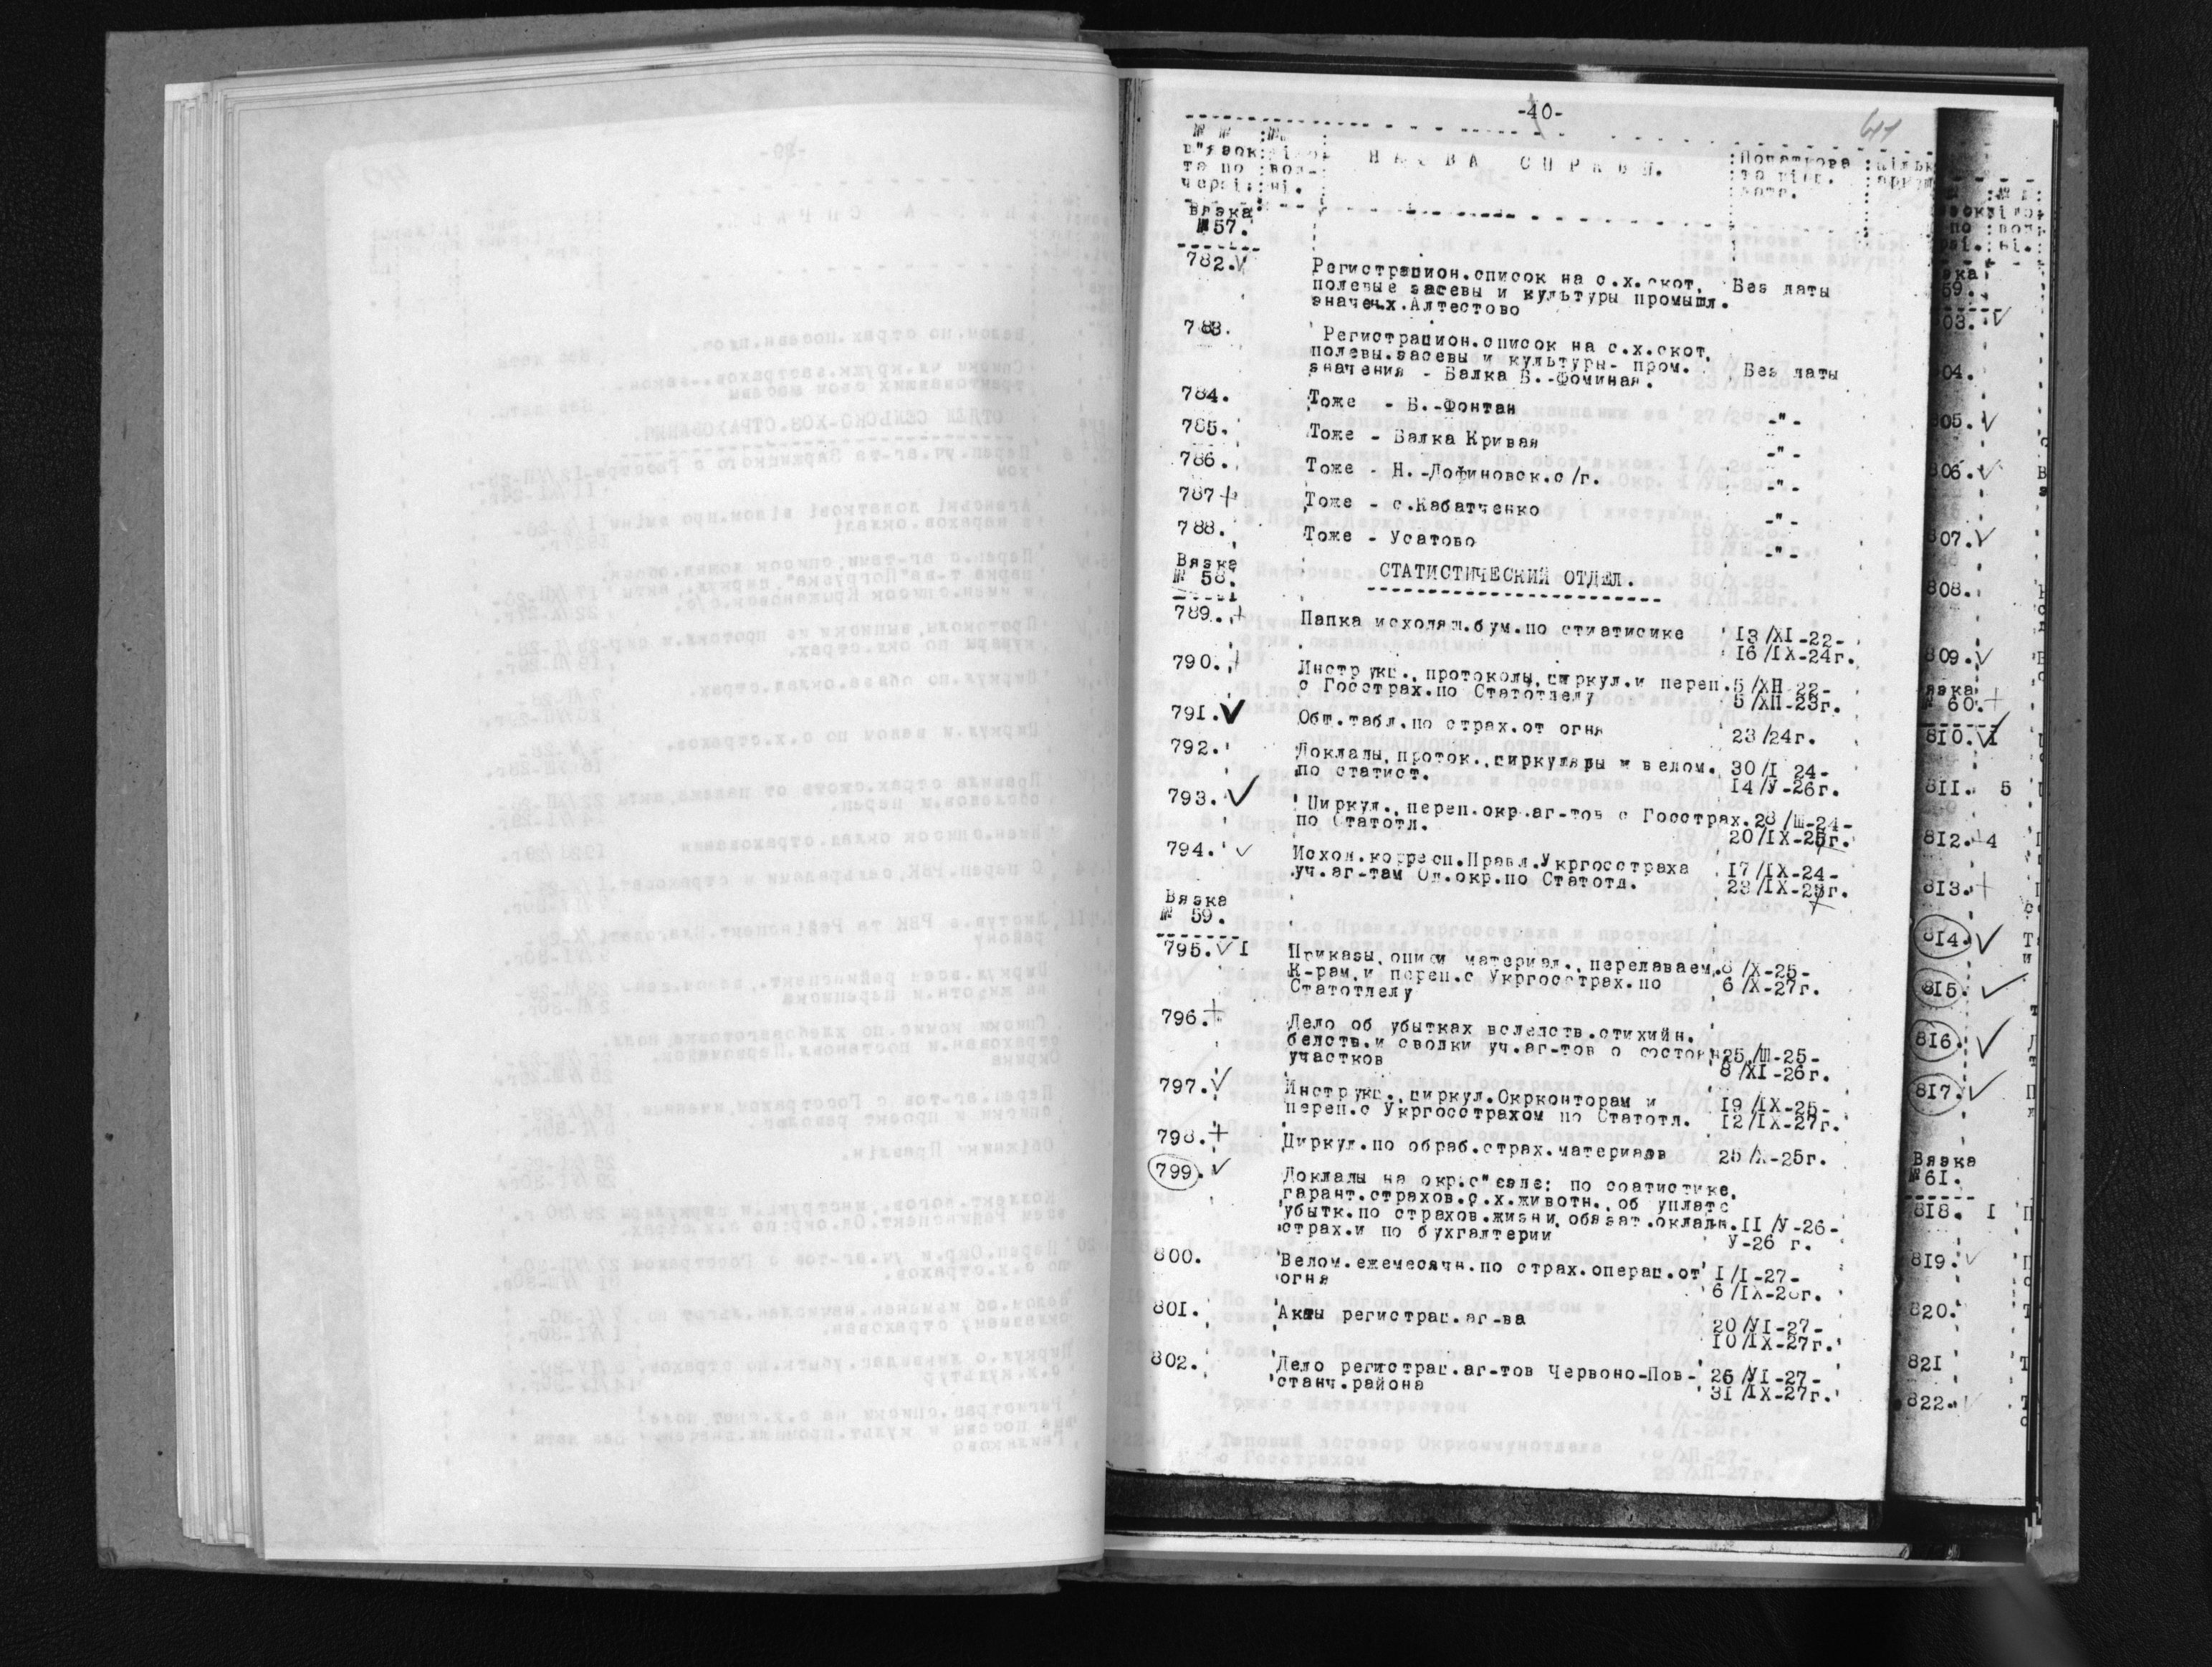 -40-
41
№ № :№
в"язок:
та по :вол-
черзі.:ні.
НАЗВА СПРАВИ.
:Початкова
Вязка
№57.
782.V Регистрацион.список на с.х.скот, Без даты
полевые засевы и культуры промышл.
значен.х.Алтестово
783. Регистрацион.список на с.х.скот,
полевы.засевы и культуры- пром. Без даты
значения - Балка Б.-Фоминая.
784. Тоже - Б.-Фонтан -"-
785. Тоже - Балка Кривая -"-
786. Тоже - Н.-Дофиновск.с/г. -"-
787+ Тоже - с.Кабатченко -"-
788. Тоже - Усатово -"-
Вязка
№ 58.
СТАТИСТИЧЕСКИЙ ОТДЕЛ.
789.+ Папка исходящ.бум.по стиатисике 13/XI-22-
16/IX-24г.
790.+ Инструкц., протоколы,циркул.и переп.5/ХП 22-
с Госстрах.по Статотделу 5/ХП-23г.
791.V Общ.табл.по страх.от огня 23/24г.
792. Доклады,проток.,циркуляры и ведом. 30/I 24-
по статист. 14/У-26г.
793.V Циркул.,переп.окр.аг-тов с Госстрах.28/Ш-24-
по Статотл. 20/IX-25г.
794.V Исход.корресп.Правл.Укргосстраха 17/IX-24-
уч.аг-там Од.окр.по Статотд. 23/IX-25г.
Вязка
№ 59.
795.V I Приказы,описи материал.,передаваем.8/X-25-
К-рам,и переп.с Укргосстрах.по 6/X-27г.
Статотделу
796.+ Дело об убытках вследств.стихийн.
бедств.и сводки уч.аг-тов о состоян 25/Ш-25-
участков 8/XI-26г.
797.V Инструкц.,циркул.Окрконторам и 19/IX-25-
переп.с Укргосстрахом по Статотл. 12/IX-27г.
798.+ Циркул.по обраб.страх.материалов 25/X-25г.
799.V Доклады на окр.с"езде: по соатистике,
гарант.страхов.с.х.животн.,об уплате
убытк.по страхов.жизни,обязат.окладн.II/У-26-
страх.и по бухгалтерии У-26 г.
800. Ведом.ежемесячн.по страх.операц.от I/I-27-
огня 6/IX-28г.
801. Акты регистрац.аг-ва 20/VI-27-
10/IX-27г.
802. Дело регистрац.аг-тов Червоно-Пов- 26/VI-27-
станч.района 31/IX-27г.
59.
03.V
804.
805.V
806.V
807.V
808.
809.V
№ 60.+
810.V I
811. 5
812. 4
813.+
814.V
815.V
816.V
817.V
Вязка
№61.
818. I
819.V
820.
821
822.